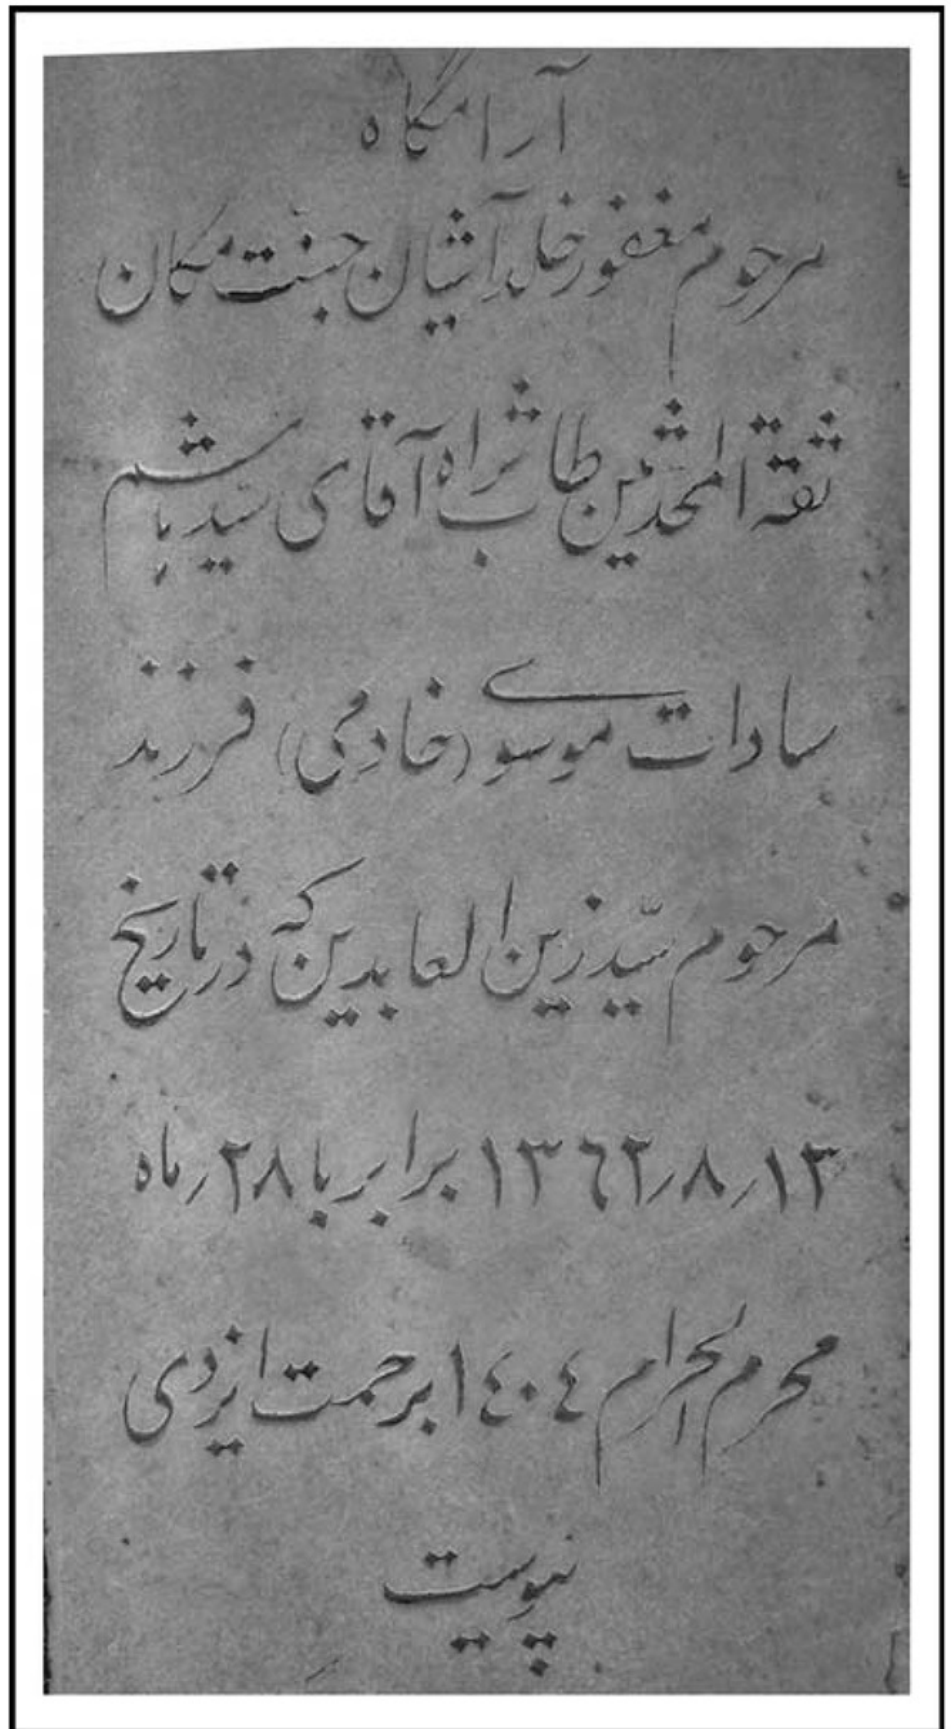 آرامگاه
مرحوم مغفور خلد آشیان جنت مکان
ثقة المحدثین طاب ثراه آقای سیّد هاشم
سادات موسوی (خادمی) فرزند
مرحوم سیّد زین العابدین که در تاریخ
۱۳٫۸٫۱۳٦۲ برابر با ۲۸ ماه
محرم الحرام ۱٤۰٤ برحمت ایزدی
پیوست